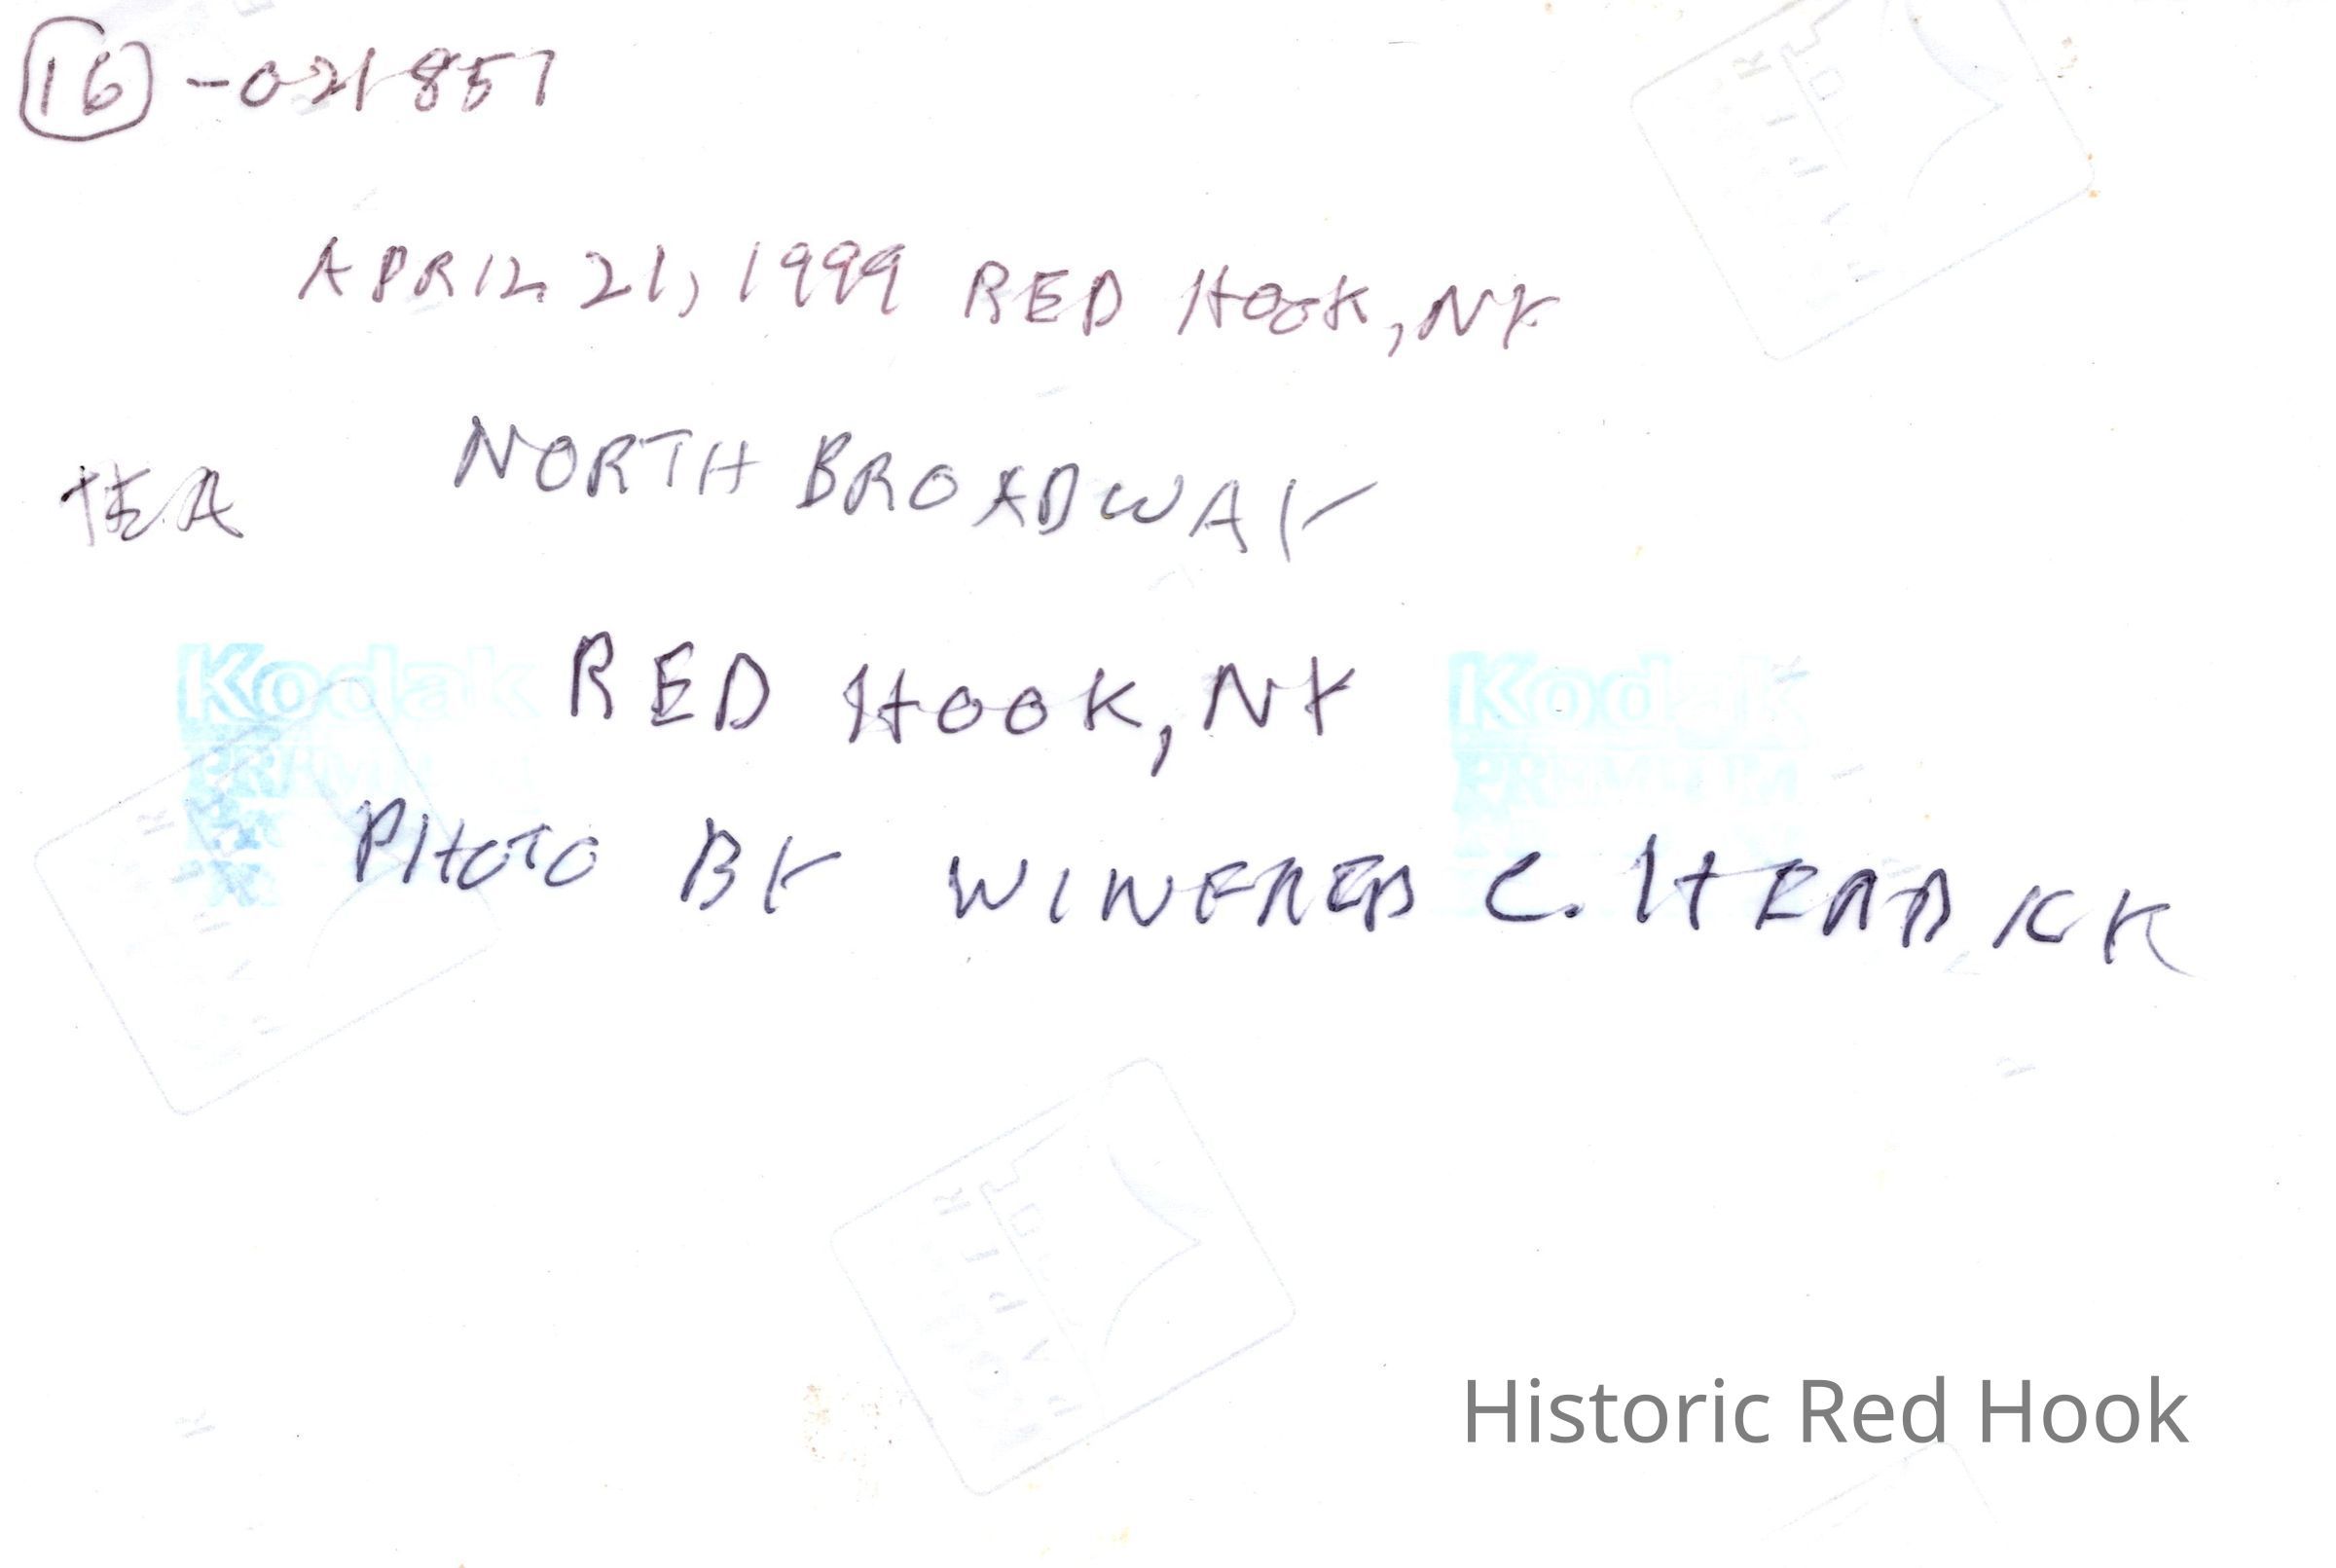 16 -021857
APRIL 21, 1999 RED HOOK, NY
NORTH BROADWAY
RED HOOK, NY
Kodak Kodak
PREMIUM
PHOTO BY WINFRED C.
Historic Red Hook